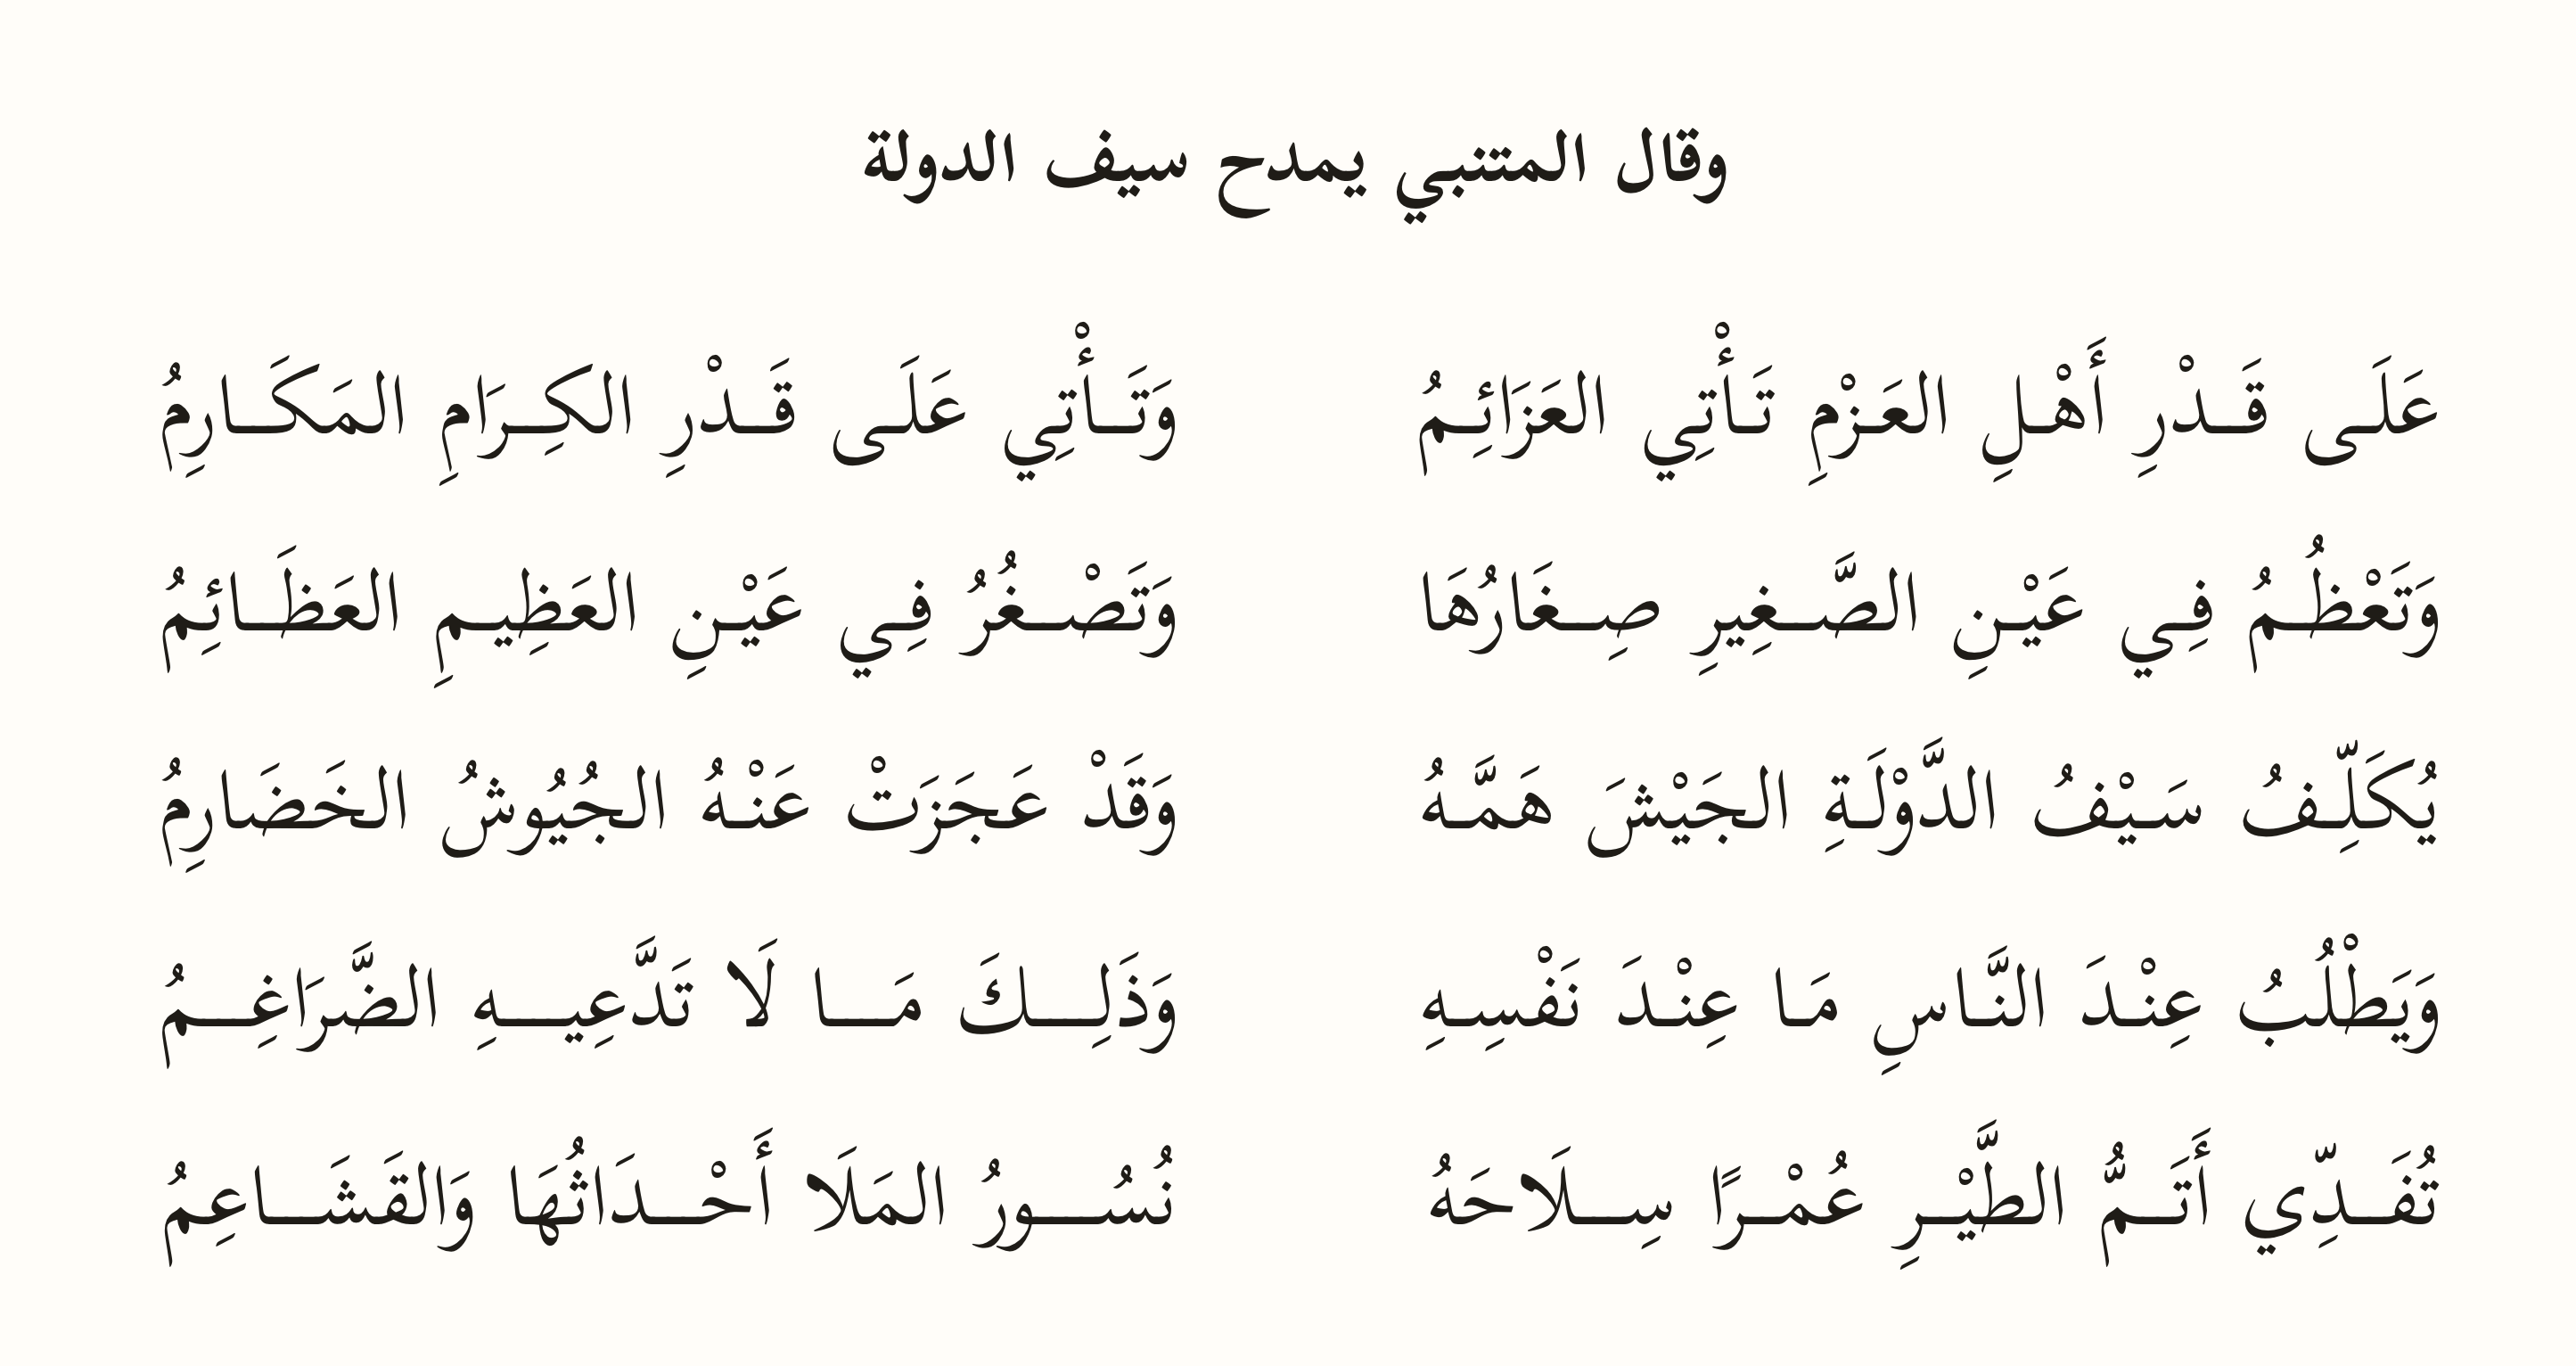 وقال المتنبي يمدح سيف الدولة
عَلَى قَدْرِ أَهْلِ العَزْمِ تَأْتِي العَزَائِمُ وَتَأْتِي عَلَى قَدْرِ الكِرَامِ المَكَارِمُ
وَتَعْظُمُ فِي عَيْنِ الصَّغِيرِ صِغَارُهَا وَتَصْغُرُ فِي عَيْنِ العَظِيمِ العَظَائِمُ
يُكَلِّفُ سَيْفُ الدَّوْلَةِ الجَيْشَ هَمَّهُ وَقَدْ عَجَزَتْ عَنْهُ الجُيُوشُ الخَضَارِمُ
وَيَطْلُبُ عِنْدَ النَّاسِ مَا عِنْدَ نَفْسِهِ وَذَلِكَ مَا لَا تَدَّعِيهِ الضَّرَاغِمُ
تُفَدِّي أَتَمُّ الطَّيْرِ عُمْرًا سِلَاحَهُ نُسُورُ المَلَا أَحْدَاثُهَا وَالقَشَاعِمُ